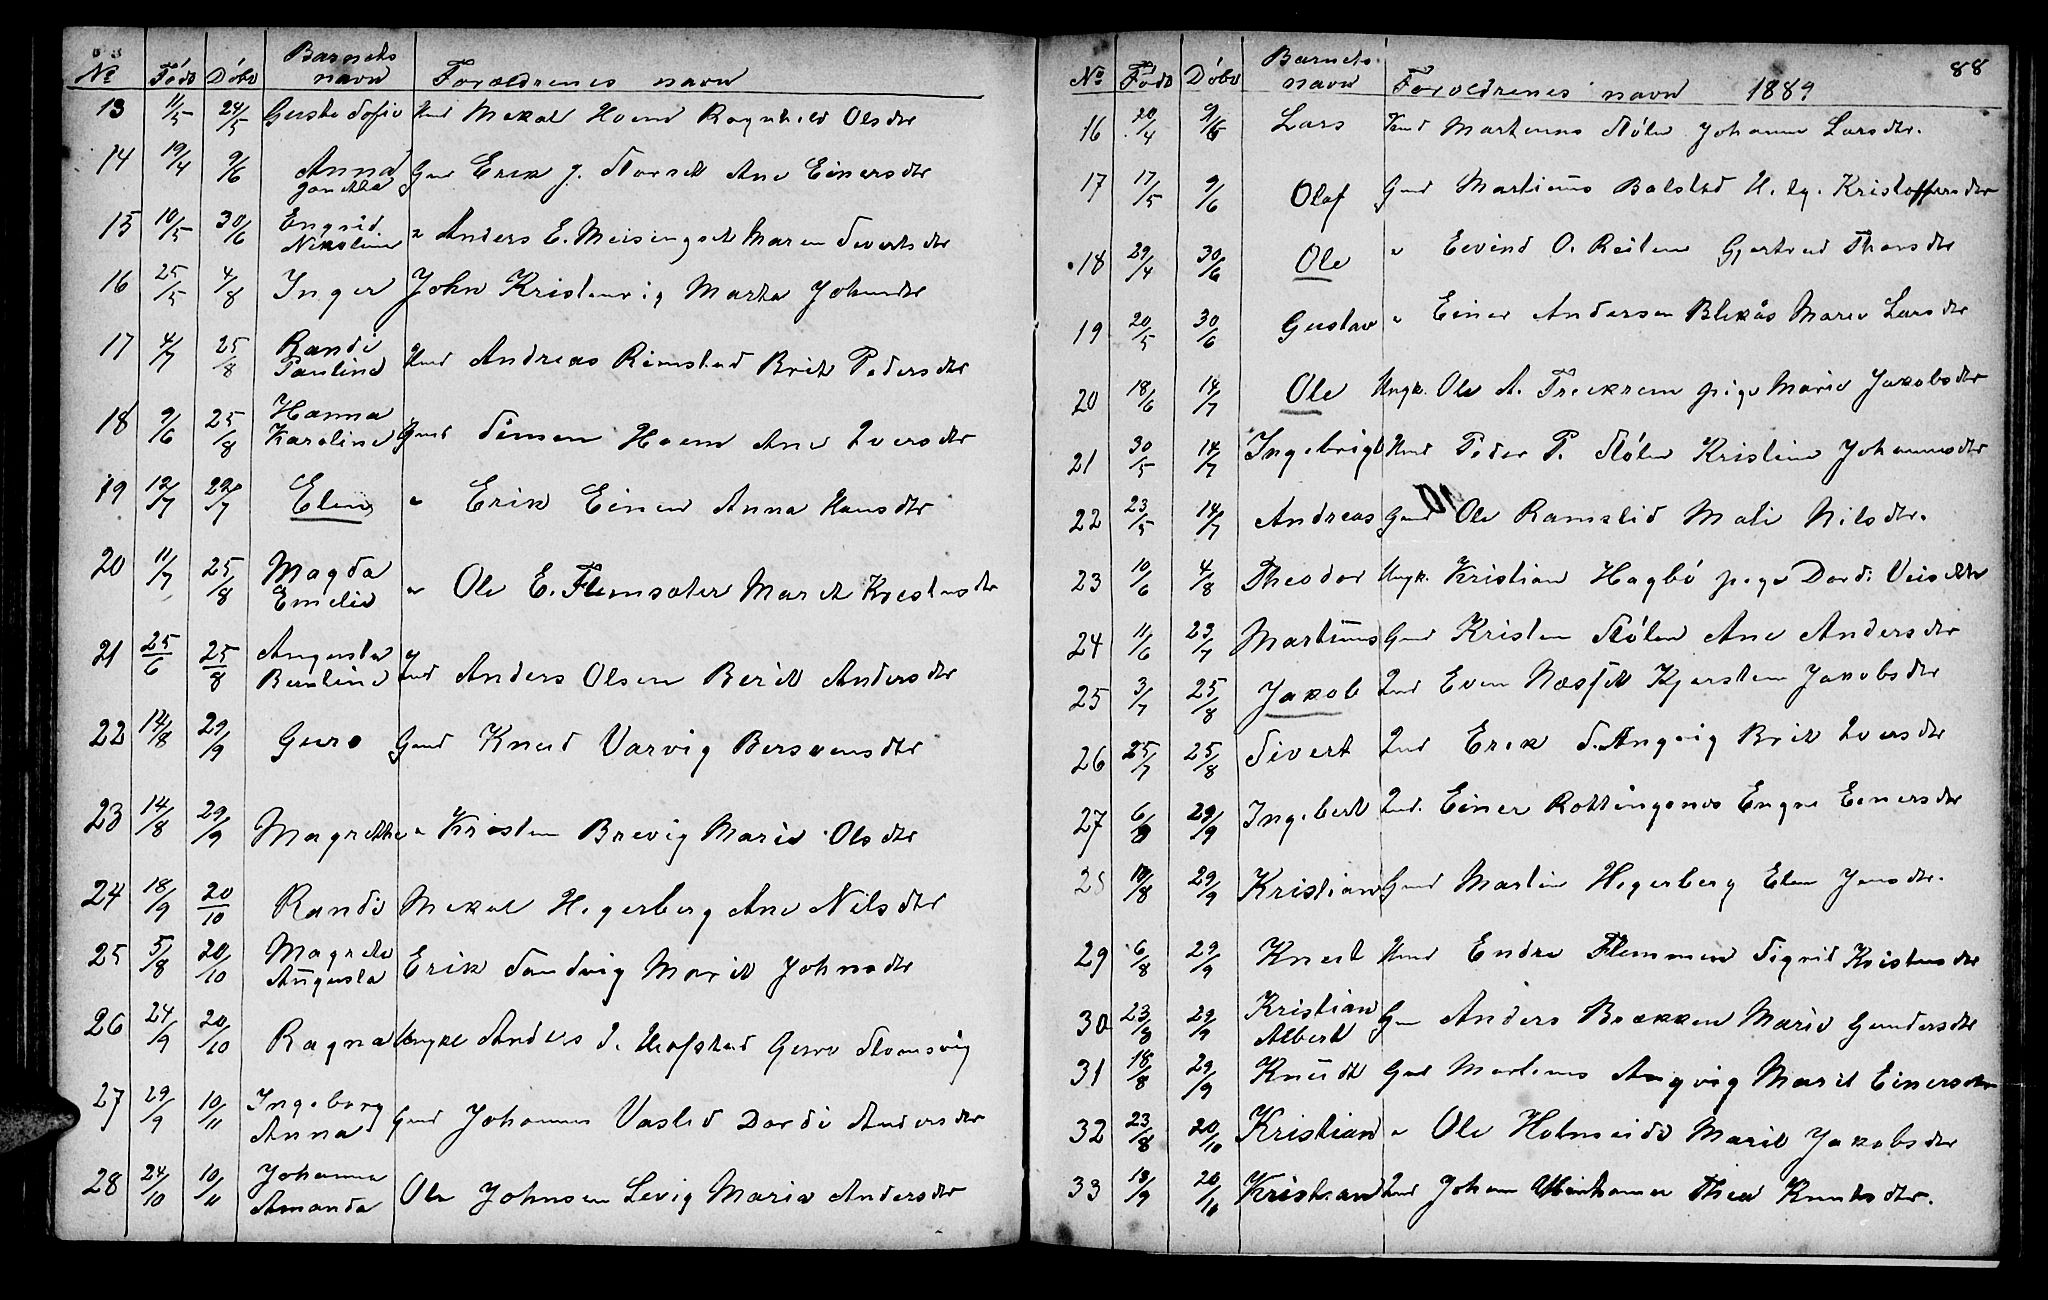 No Født Døbt Barnets navn Forældrenes navn
13 11/5 24/5 Gusta Sofie Hmd Mekal Hoem Ragnhild Olsdtr
14 19/4 9/6 Anna Gmd Erik J. Storset Ane Einersdtr
15 10/5 30/6 Engrid Nikoline " Anders E. Meisingset Maren Sivertsdtr
16 25/5 4/8 Inger John Kristenvig Marta Johnsdtr
17 4/7 25/8 Randi Pauline Hmd Andreas Rimstad Brit Pedersdtr
18 9/6 25/8 Hanna Karoline Gmd Simen Hoem Ane Iversdtr
19 12/7 22/7 Elen " Erik Einen Anna Hansdtr
20 11/7 25/8 Magda Emelie " Ole E. Flemsæter Marit Kristensdtr
21 25/6 25/8 Augusta Berntine Ind Anders Olsen Berit Andersdtr
22 14/8 29/9 Guro Gmd Knud Varvig Beret Svensdtr
23 14/8 29/9 Magrethe " Kristen Brevig Marit Olsdtr
24 18/9 20/10 Randi Mekal Hegerberg Ane Nilsdtr
25 5/8 20/10 Magrete Augusta Erik Sandvig Marit Johnsdtr
26 24/9 20/10 Ragna Ungkl Anders J. Hofstad Guro Stomsvig
27 29/9 10/11 Ingeborg Anna Gmd Johannes Vaslid Dordi Andersdtr
28 24/10 10/11 Johanna Amanda Ole Johnsen Levig Marit Andersdtr
88
No Født Døbt Barnets navn Forældrenes navn 1889
16 20/4 9/6 Lars Hmd Martenus Stølen Johanne Larsdtr.
17 17/5 9/6 Olaf Gmd Martinus Bolstad Kristoffersdtr
18 29/4 30/6 Ole " Eivind O. Reiten Gjertrud Thorsdtr
19 20/5 30/6 Gustav " Einer Andersen Blekås Marit Larsdtr
20 18/6 14/7 Ole Ungk. Ole A. Trækrem pige Marit Jakobsdtr
21 30/5 14/7 Ingebrigt Hmd Peder P. Stølen Kristine Johannesdtr
22 23/5 14/7 Andreas Gmd Ole Ramslid Mali Nilsdtr.
23 10/6 4/8 Theodor Ungk. Kristian Hagbø pige Dordi
24 11/6 23/7 Martinus Gmd Kristen Stølen Ane Andersdtr
25 3/7 25/8 Jakob Ind Even Næsset Kjersten Jakobsdtr
26 25/7 25/8 Sivert Ind Erik S. Angvig Brit Iversdtr
27 6/8 29/9 Ingebert Ind. Einer Rottingsnes Engre Einersdtr
10/8 29/9 Kristian Gmd Martin Hegerberg Elen Jonsdtr.
29 6/8 29/9 Knut Hmd Endre Flemmen Sigrid Kristensdtr
30 23/8 29/9 Kristian Albert Gm Anders Brækken Marit Gundersdtr
31 18/8 29/9 Knudt Gmd Martenus Angvig Marit Einersdtr
32 23/8 20/10 Kristian " Ole Holmeide Marit Jakobsdtr
33 13/9 20/10 Kristian Ind Johan Thea Knutsdtr.